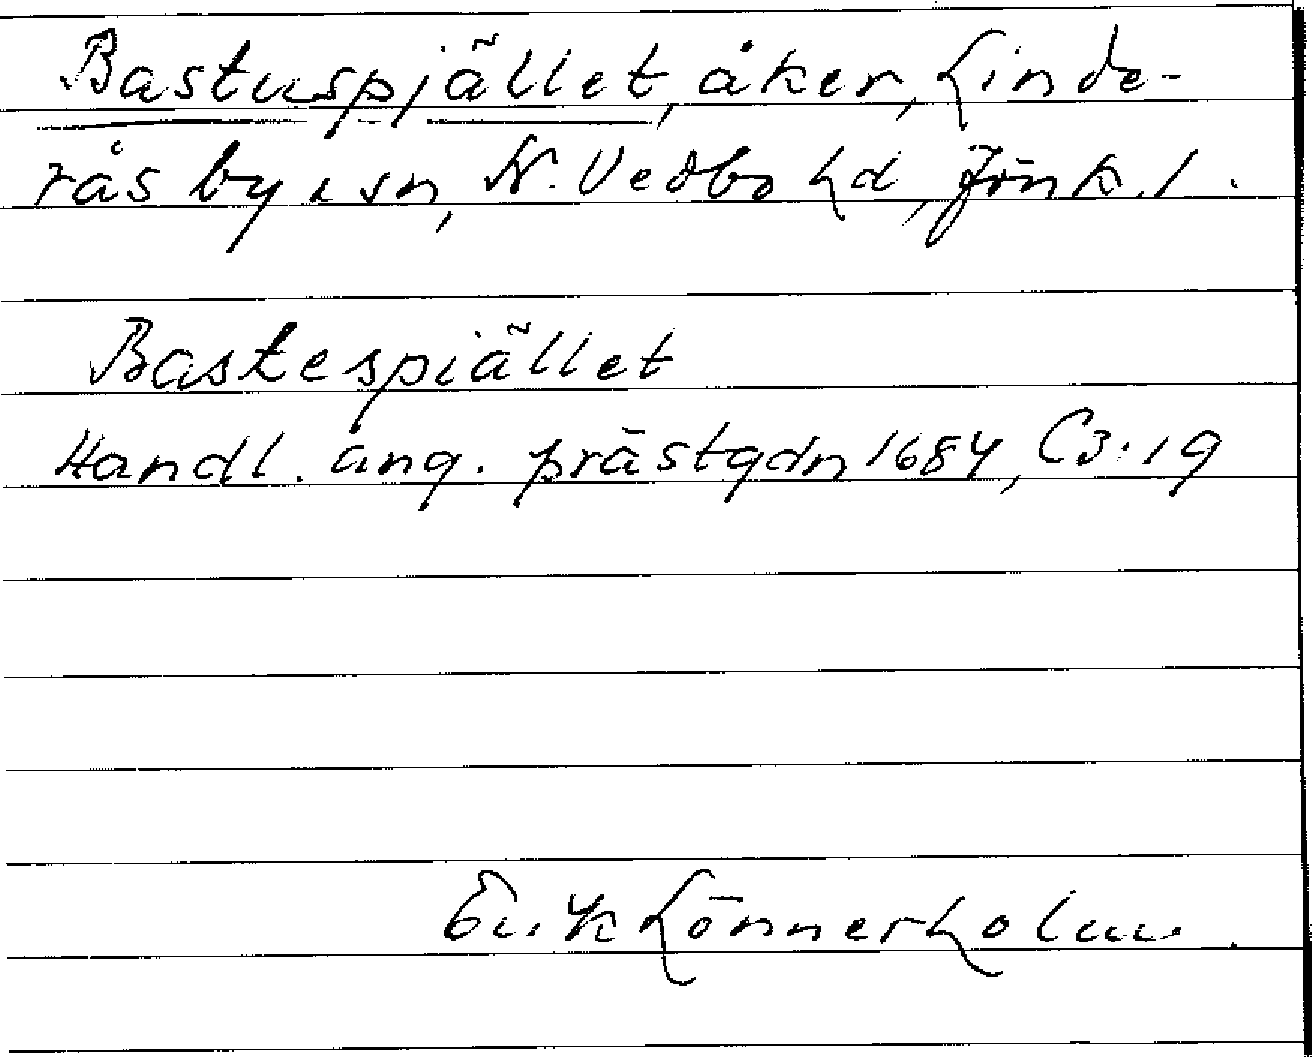 Bastuspjället, åker, Linde-
rås by o sn, N. Vedbo hd, Jönk. l.
Bastespiället
Handl. ang. prästgdn 1684, C3:19
Erik Lönnerholm